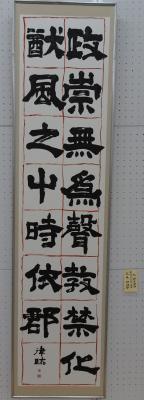 政崇無為聲教禁化
猷風之中時依郡